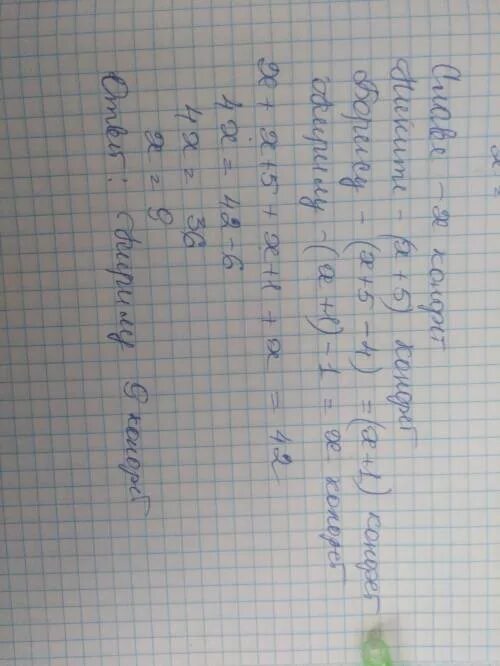 x =
Славе - x конфет
Никите - (x+5) конфет
Борису - (x+5-4) = (x+1) конфет
Кириллу - (x+1)-1 = x конфет
x + x+5 + x+1 + x = 42
4x = 42-6
4x = 36
x = 9
Ответ: Кириллу 9 конфет